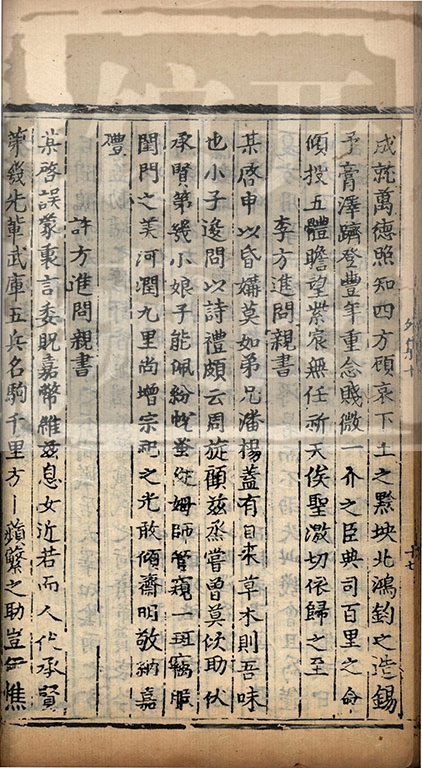 成就萬德照知四方頋哀下土之㸃坱北鴻鈞之造錫
予膏澤躋登豐年重念賤微一介之臣典司百里之命
傾投五體瞻望紫宸無任祈天俟聖激切依歸之至
李方進問親書
某啓申以昏媾莫如弟兄潘楊蓋有自来草木則吾味
也小子逡問以詩禮頗云周旋顧兹烝嘗曽莫伩助伏
承賢第幾小娘子能佩紛帨蚤從姆師管窺一斑竊服
閨門之美河潤九里尚增宗祀之光敢傾齋明敬納嘉
禮
許方進問親書
某啓誤蒙重言委貺嘉幣維兹息女近若而人伏承賢
第幾先軰武庫五兵名駒千里方蘋蘩之助豈憔
外集十
十七